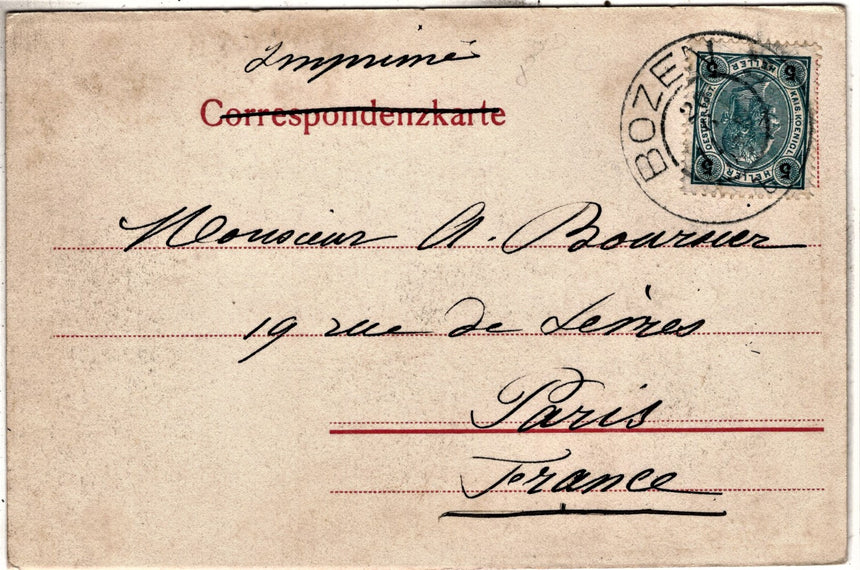 Imprimé
Correspondenzkarte
BOZEN
5 HELLER 5
OESTERR. POST
KAIS. KOENIGL.
5 HELLER 5
Monsieur A. Boursier
19 rue de Sèvres
Paris
France